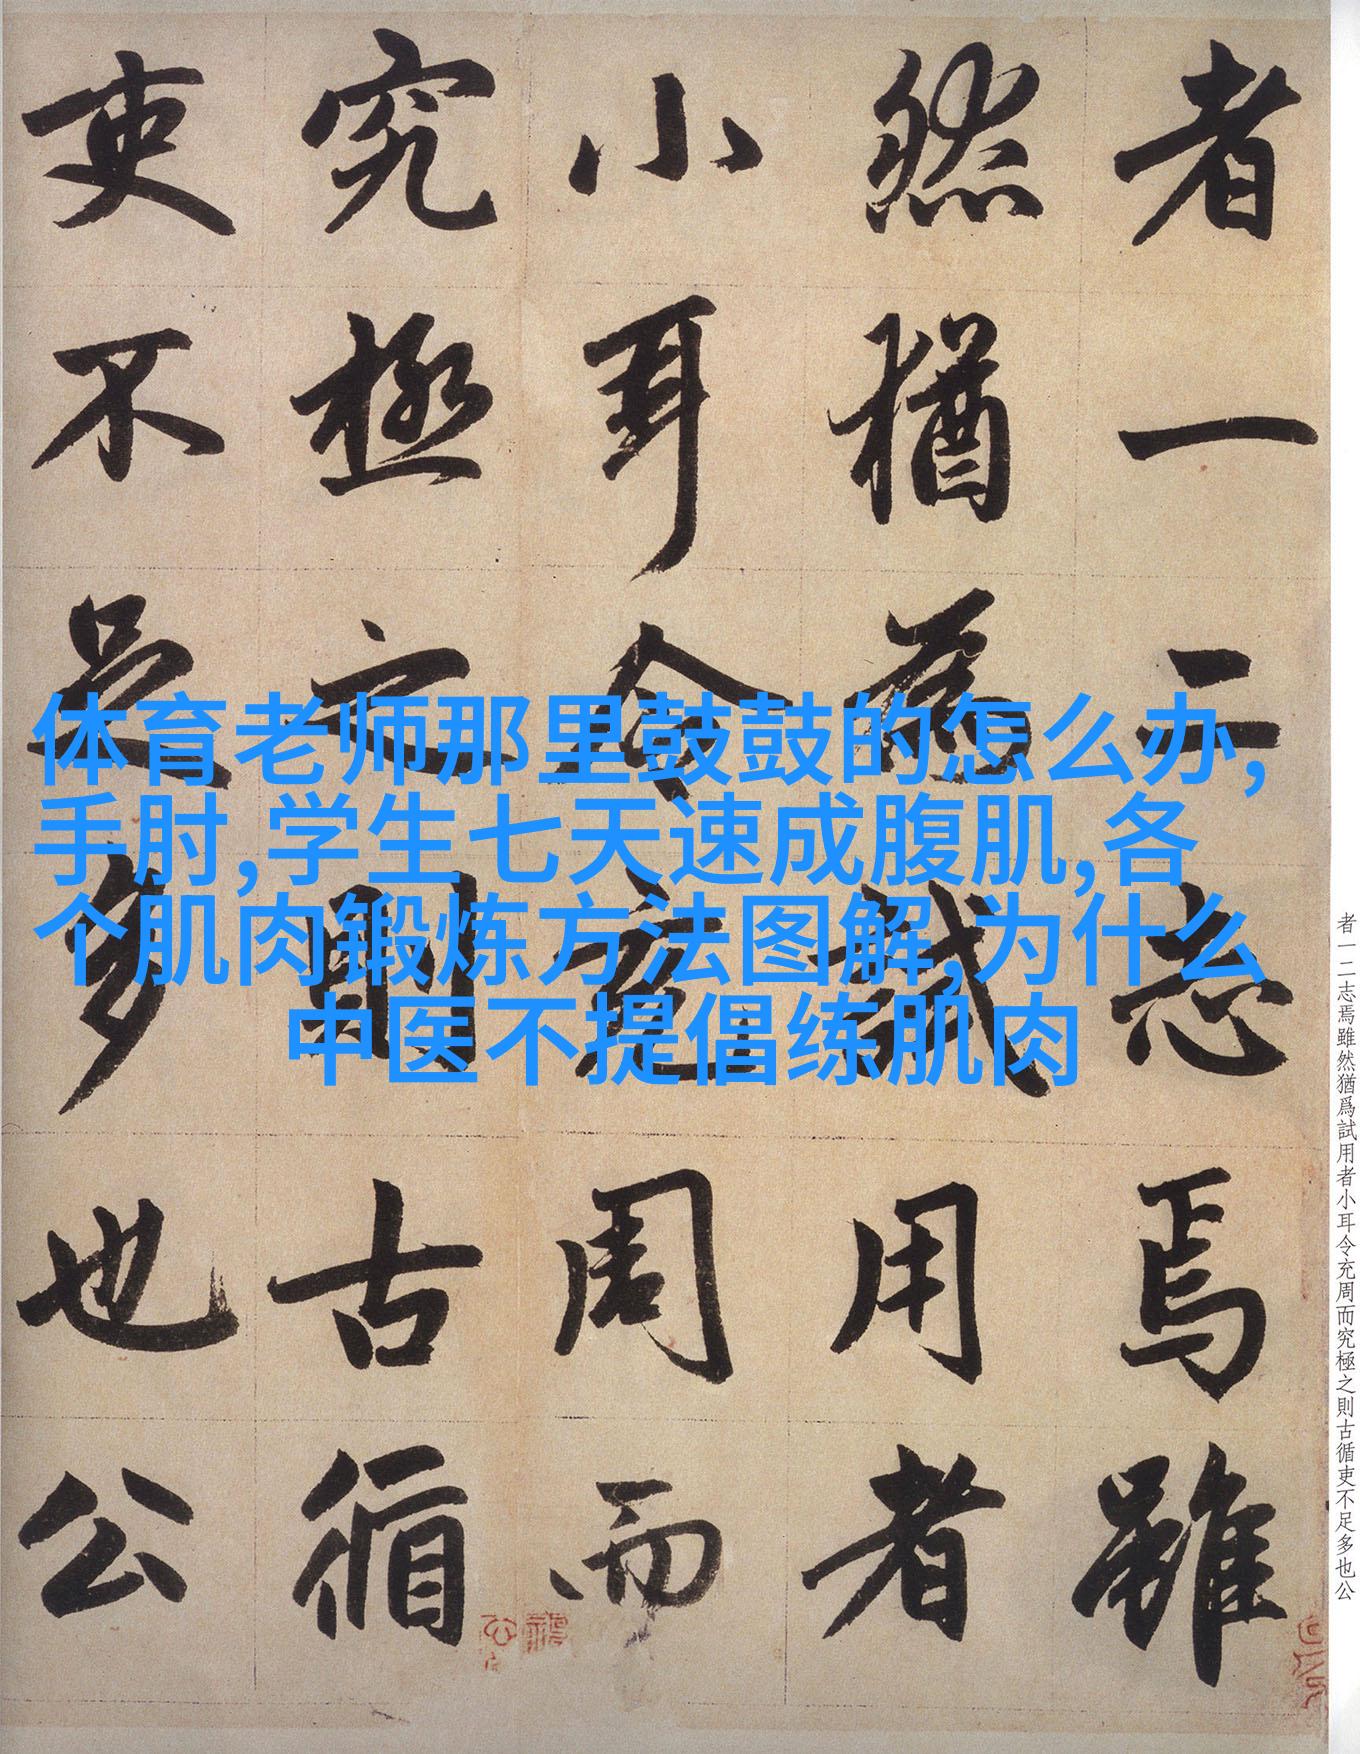 者一二志焉雖
然猶為試用者
小耳令充周而
究極之則古循
吏不足多也公
体育老师那里鼓鼓的怎么办,
手肘,学生七天速成腹肌,各
个肌肉锻炼方法图解,为什么
中医不提倡练肌肉
者一二志焉雖然猶爲試用者小耳令充周而究極之則古循吏不足多也公